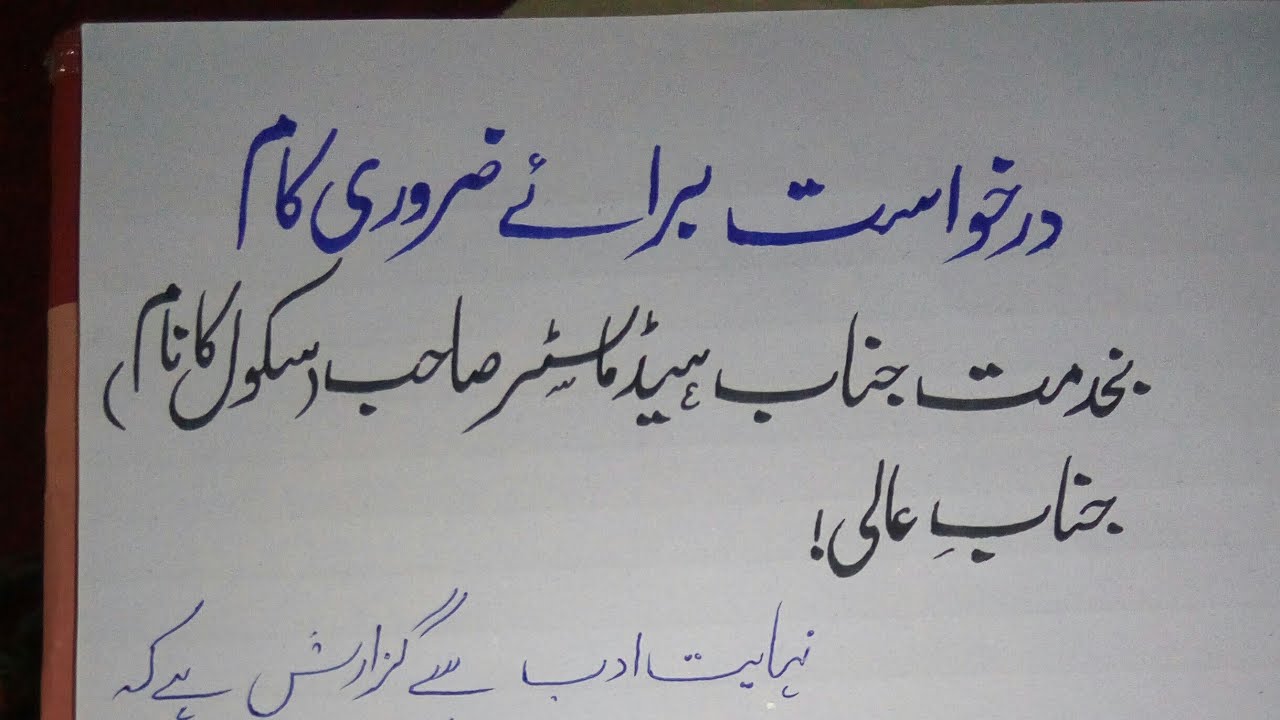 درخواست برائے ضروری کام
بخدمت جناب ہیڈ ماسٹر صاحب (سکول کا نام)
جنابِ عالی!
نہایت ادب سے گزارش ہے کہ